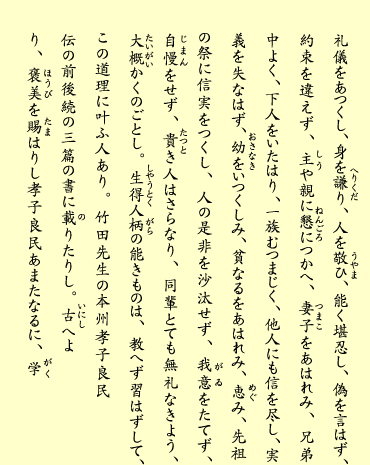 礼儀をあつくし、身を謙り、人を敬ひ、能く堪忍し、偽を言はず、
約束を違えず、主や親に懇につかへ、妻子をあはれみ、兄弟
中よく、下人をいたはり、一族むつまじく、他人にも信を尽し、実
義を失なはず、幼をいつくしみ、貧なるをあはれみ、恵み、先祖
の祭に信実をつくし、人の是非を沙汰せず、我意をたてず、
自慢をせず、貴き人はさらなり、同輩とても無礼なきよう、
大概かくのごとし。生得人柄の能きものは、教へず習はずして、
この道理に叶ふ人あり。竹田先生の本州孝子良民
伝の前後続の三篇の書に載りたりし。古へよ
り、褒美を賜はりし孝子良民あまたなるに、学